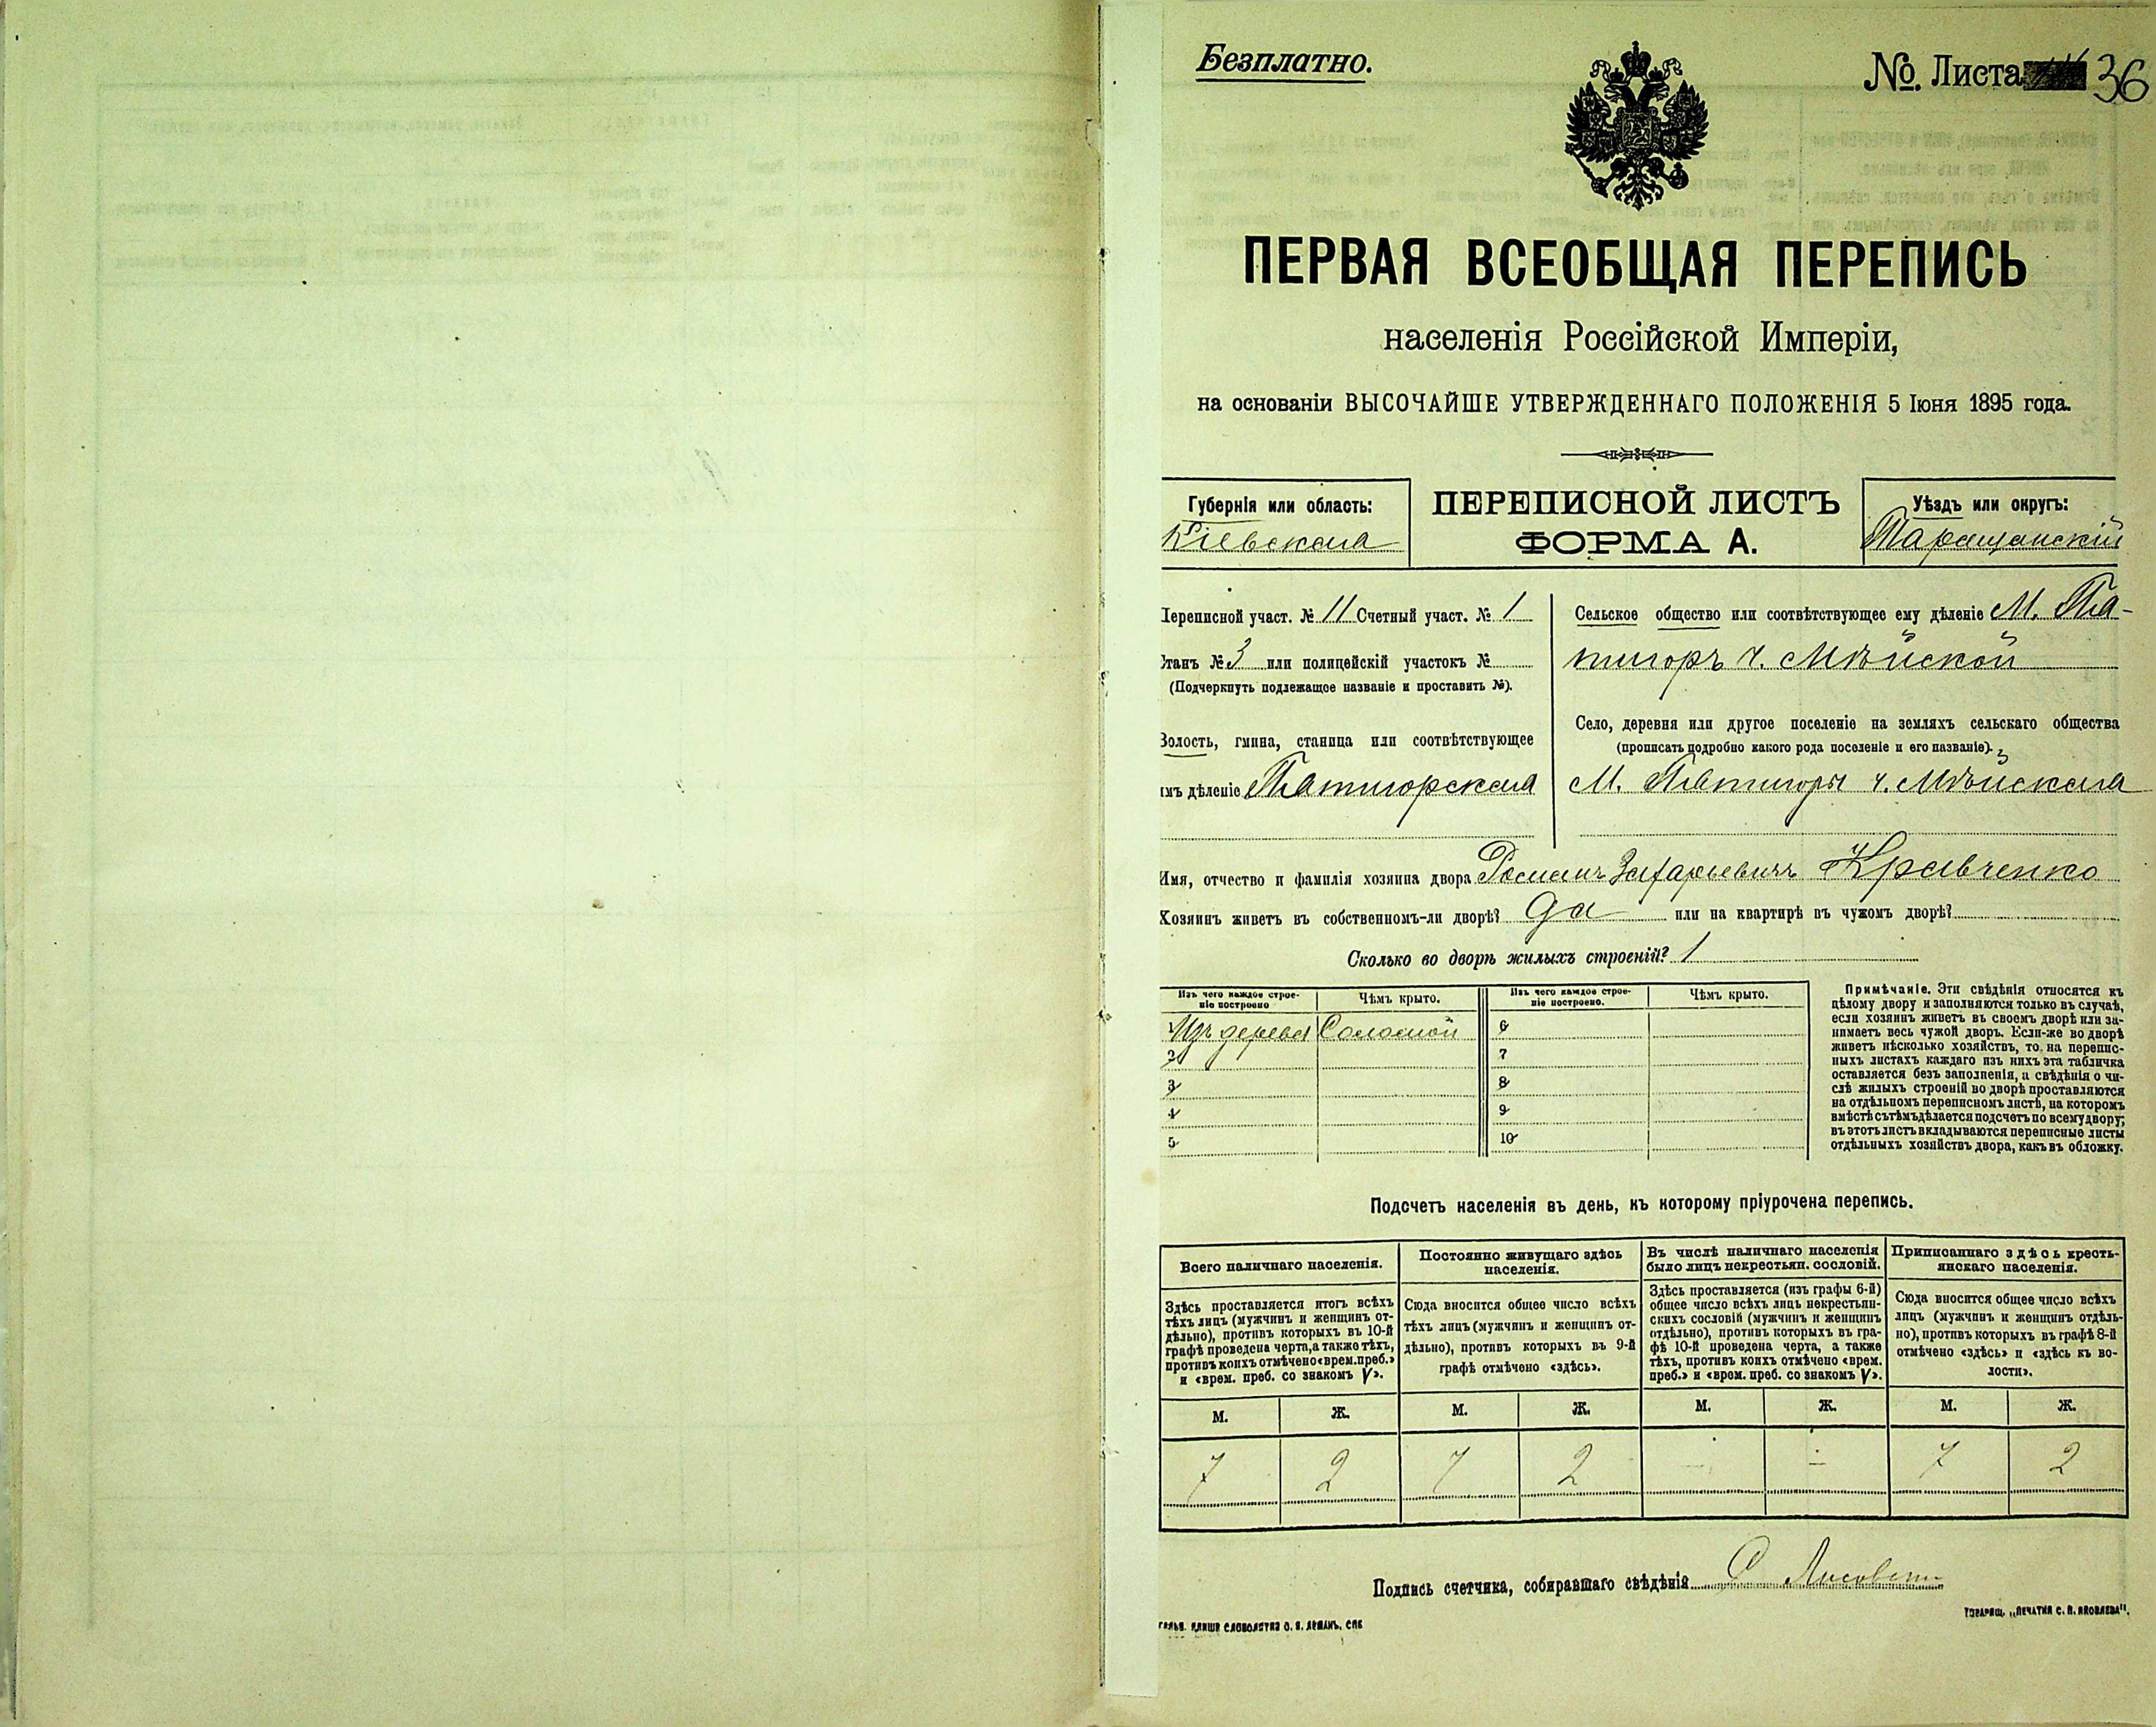 Безплатно.
№. Листа 36
ПЕРВАЯ ВСЕОБЩАЯ ПЕРЕПИСЬ
населенія Россійской Имперіи,
на основаніи ВЫСОЧАЙШЕ УТВЕРЖДЕННАГО ПОЛОЖЕНІЯ 5 Іюня 1895 года.
Губернія или область:
Кіевская
ПЕРЕПИСНОЙ ЛИСТЪ
ФОРМА А.
Уѣздъ или округъ:
Таращанскій
Переписной участ. № 11 Счетный участ. № 1
Станъ № 3 или полицейскій участокъ №
(Подчеркнуть подлежащее названіе и проставить №).
Волость, гмина, станица или соотвѣтствующее
имъ дѣленіе Пятигорская
Сельское общество или соотвѣтствующее ему дѣленіе М. Пя-
тигоръ ч.
Село, деревня или другое поселеніе на земляхъ сельскаго общества
(прописать подробно какого рода поселеніе и его названіе).
М. Пятигоры ч.
Имя, отчество и фамилія хозяина двора Романъ Захарьевичъ Кравченко
Хозяинъ живетъ въ собственномъ-ли дворѣ? Да или на квартирѣ въ чужомъ дворѣ?
Сколько во дворѣ жилыхъ строеній? 1
Изъ чего каждое строе-
ніе построено
Чѣмъ крыто.
Изъ чего каждое строе-
ніе построено.
Чѣмъ крыто.
1 Изъ дерева Соломой
2
3
4
5
6
7
8
9
10
Примѣчаніе. Эти свѣдѣнія относятся къ
цѣлому двору и заполняются только въ случаѣ,
если хозяинъ живетъ въ своемъ дворѣ или за-
нимаетъ весь чужой дворъ. Если-же во дворѣ
живетъ нѣсколько хозяйствъ, то на перепис-
ныхъ листахъ каждаго изъ нихъ эта табличка
оставляется безъ заполненія, а свѣдѣнія о чи-
слѣ жилыхъ строеній во дворѣ проставляются
на отдѣльномъ переписномъ листѣ, на которомъ
вмѣстѣ съ тѣмъ дѣлается подсчетъ по всему двору;
въ этотъ листъ вкладываются переписные листы
отдѣльныхъ хозяйствъ двора, какъ въ обложку.
Подсчетъ населенія въ день, къ которому пріурочена перепись.
Всего наличнаго населенія.
Здѣсь проставляется итогъ всѣхъ
тѣхъ лицъ (мужчинъ и женщинъ от-
дѣльно), противъ которыхъ въ 10-й
графѣ проведена черта, а также тѣхъ,
противъ коихъ отмѣчено «врем. преб.»
и «врем. преб. со знакомъ V».
Постоянно живущаго здѣсь
населенія.
Сюда вносится общее число всѣхъ
тѣхъ лицъ (мужчинъ и женщинъ от-
дѣльно), противъ которыхъ въ 9-й
графѣ отмѣчено «здѣсь».
Въ числѣ наличнаго населенія
было лицъ некрестьян. сословій.
Здѣсь проставляется (изъ графы 6-й)
общее число всѣхъ лицъ некрестьян-
скихъ сословій (мужчинъ и женщинъ
отдѣльно), противъ которыхъ въ гра-
фѣ 10-й проведена черта, а также
тѣхъ, противъ коихъ отмѣчено «врем.
преб.» и «врем. преб. со знакомъ V».
Приписаннаго здѣсь кресть-
янскаго населенія.
Сюда вносится общее число всѣхъ
лицъ (мужчинъ и женщинъ отдѣль-
но), противъ которыхъ въ графѣ 8-й
отмѣчено «здѣсь» и «здѣсь къ во-
лости».
М. Ж. М. Ж. М. Ж. М. Ж.
7 2 7 2 - - 7 2
Подпись счетчика, собиравшаго свѣдѣнія
ТОВАРИЩ. „ПЕЧАТНЯ С. П. ЯКОВЛЕВА".